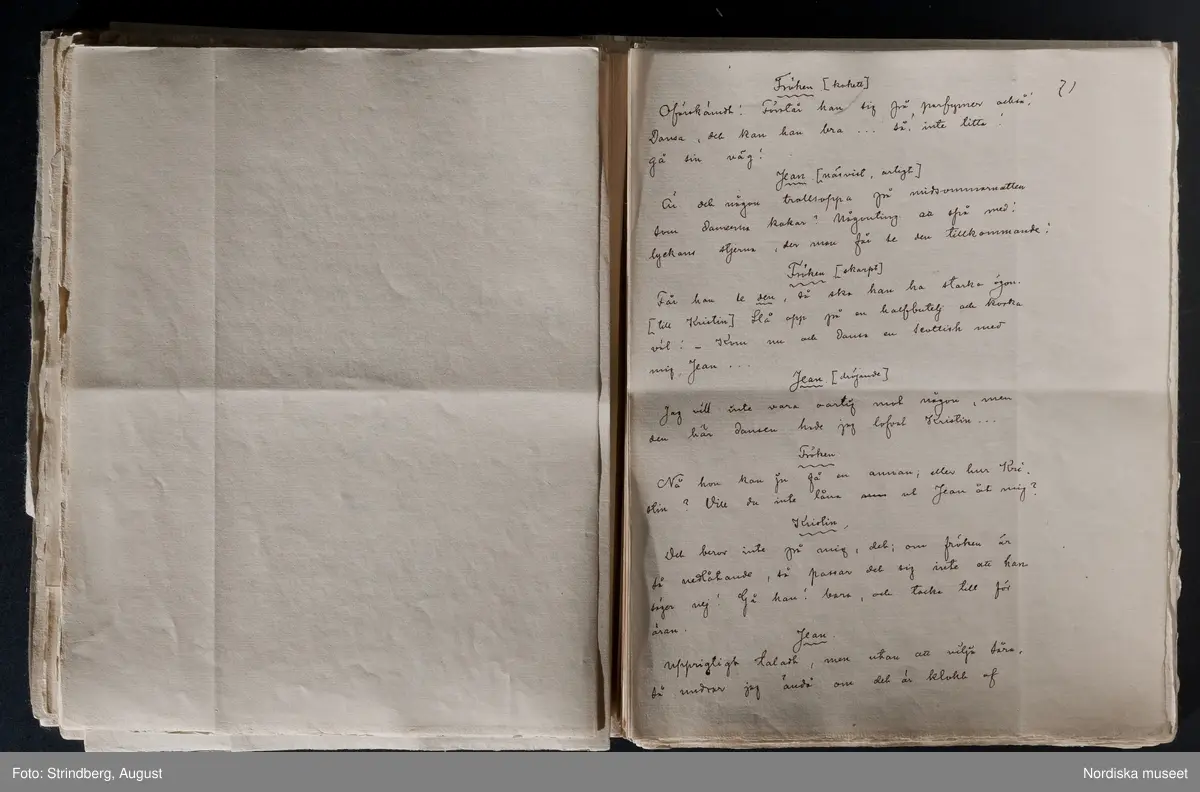 Fröken [kokett]
21
Oförskämdt! Förstår han sig på parfymer också!
Dansa, det kan han bra ... så, inte titta!
gå sin väg!
Jean [näsvist, artigt]
Är det någon trollsoppa på midsommarnatten
som damerna kokar? Någonting att spå med!
lyckans stjerna, der man får se den tillkommande!
Fröken [skarpt]
Får han se den, så ska han ha starka ögon.
[till Kristin] Slå opp på en halfbutelj och korka
väl! – Kom nu och dansa en Scottish med
mig, Jean ...
Jean [dröjande]
Jag vill inte vara oartig mot någon, men
den här dansen hade jag lofvat Kristin ...
Fröken
Nå hon kan ju få en annan; eller hur Kri-
stin? Vill du inte låna ut Jean åt mig?
Kristin.
Det beror inte på mig, det; om fröken är
så nedlåtande, så passar det sig inte att han
säger nej! Gå han! bara, och tacka till för
äran.
Jean.
Uppriktigt taladt, men utan att vilja såra,
så undrar jag ändå om det är klokt af
Foto: Strindberg, August
Nordiska museet